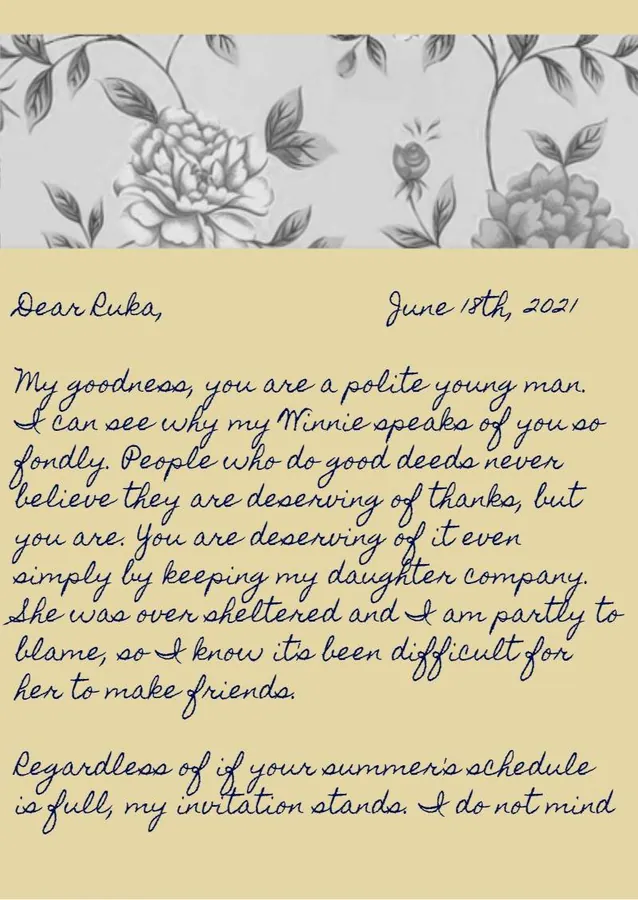 Dear Ruka, June 18th, 2021
My goodness, you are a polite young man.
I can see why my Winnie speaks of you so
fondly. People who do good deeds never
believe they are deserving of thanks, but
you are. You are deserving of it even
simply by keeping my daughter company.
She was over sheltered and I am partly to
blame, so I know it's been difficult for
her to make friends.
Regardless of if your summer's schedule
is full, my invitation stands. I do not mind